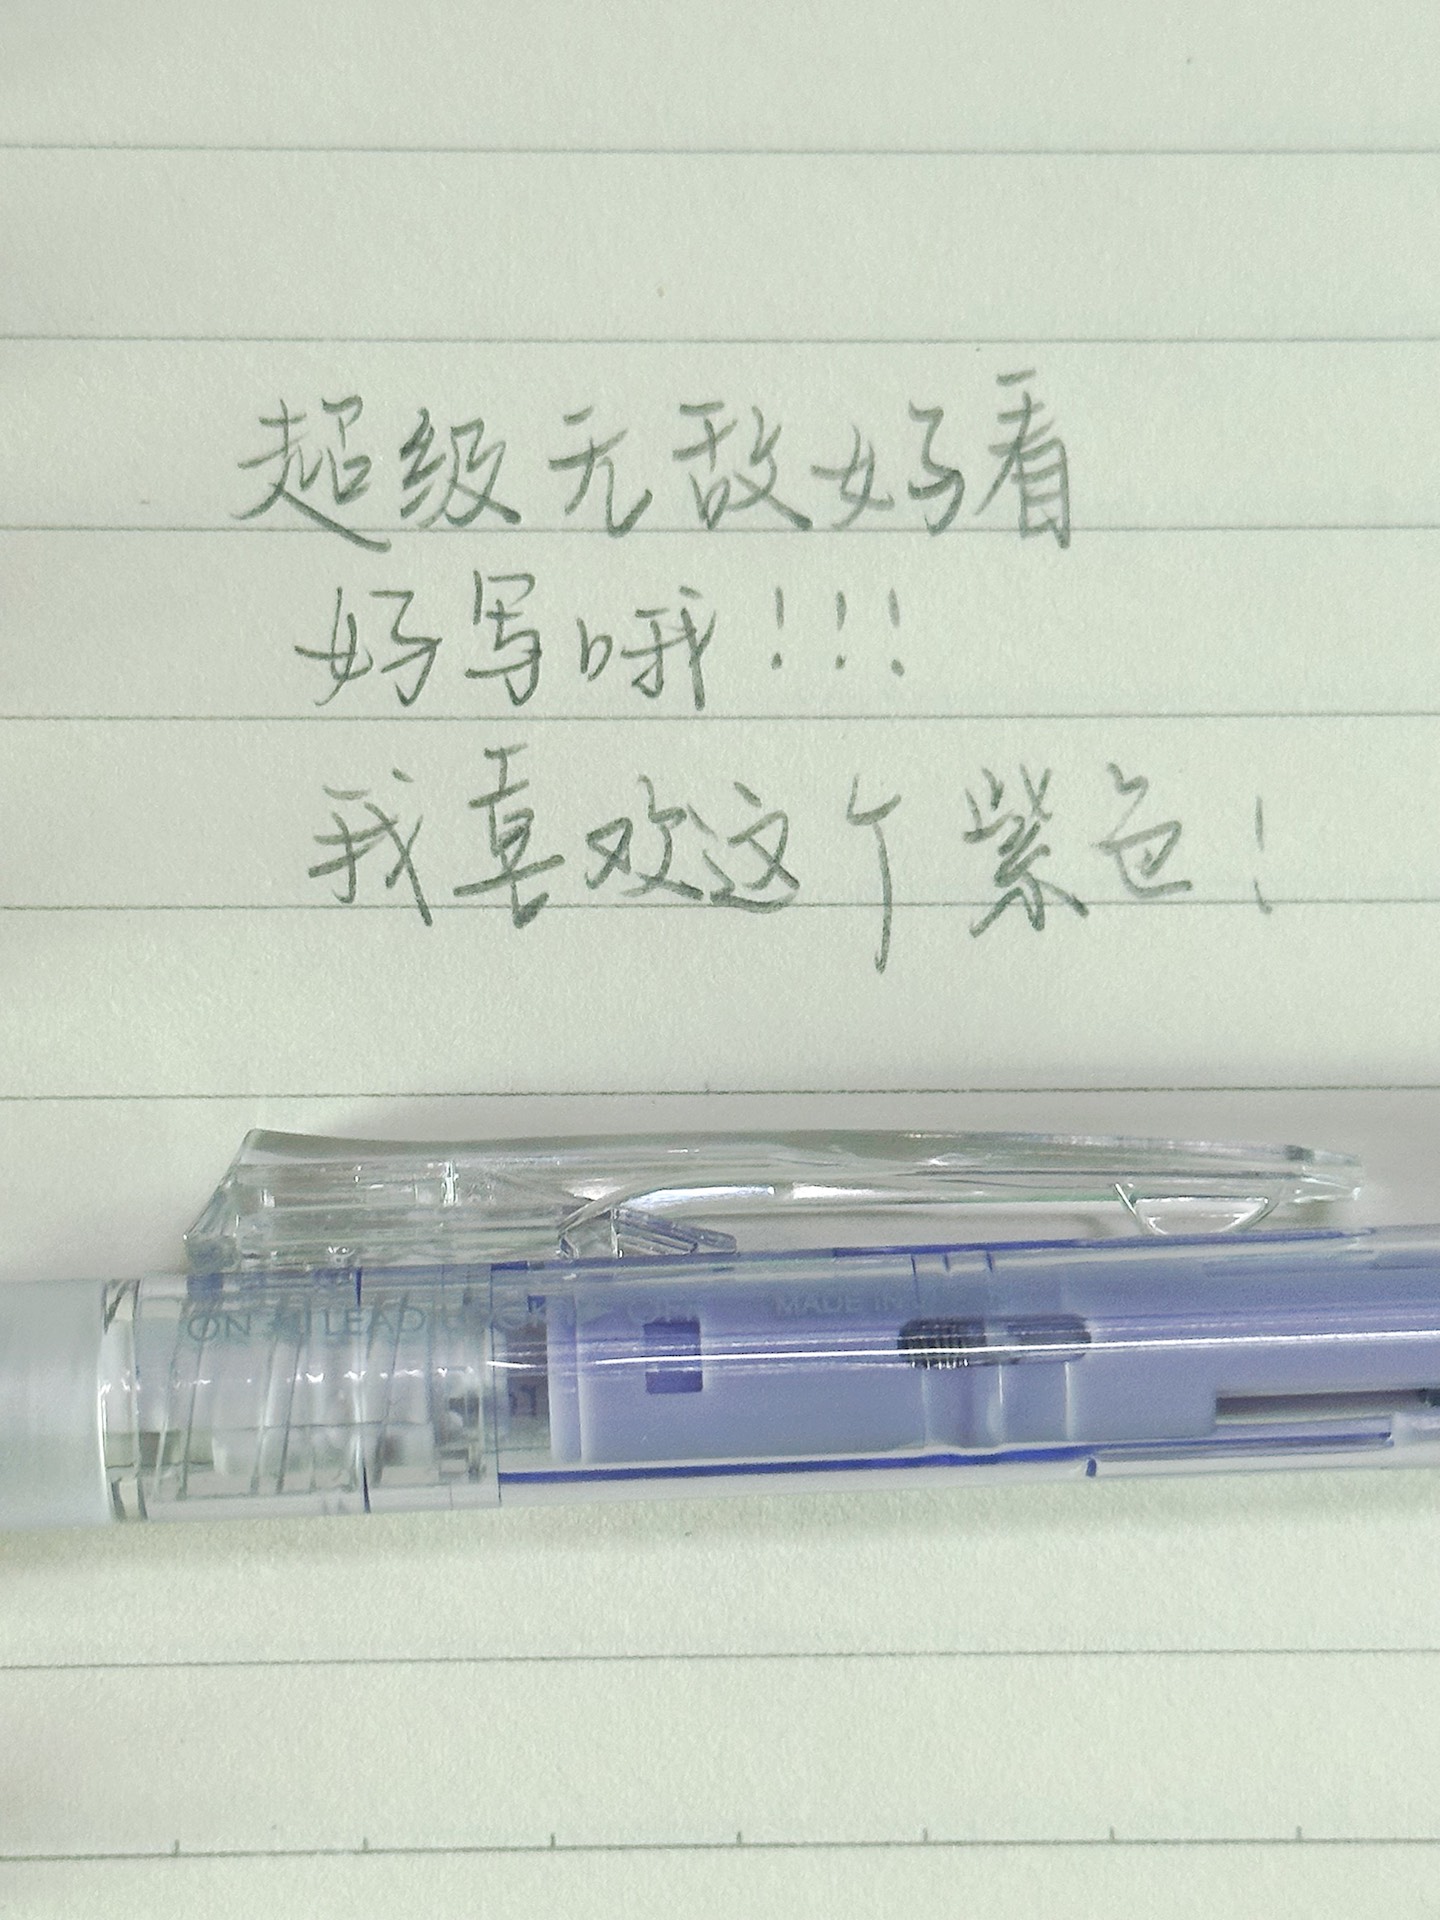 超级无敌好看
好写哦!!!
我喜欢这个紫色!
ON LEAD
MADE IN